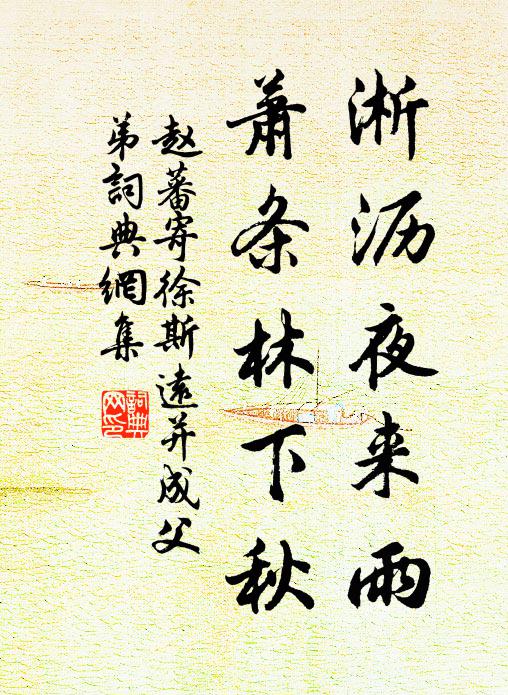 淅沥夜来雨
萧条林下秋
赵蕃寄徐斯遠并成父
弟詞典網集
詞典
网印